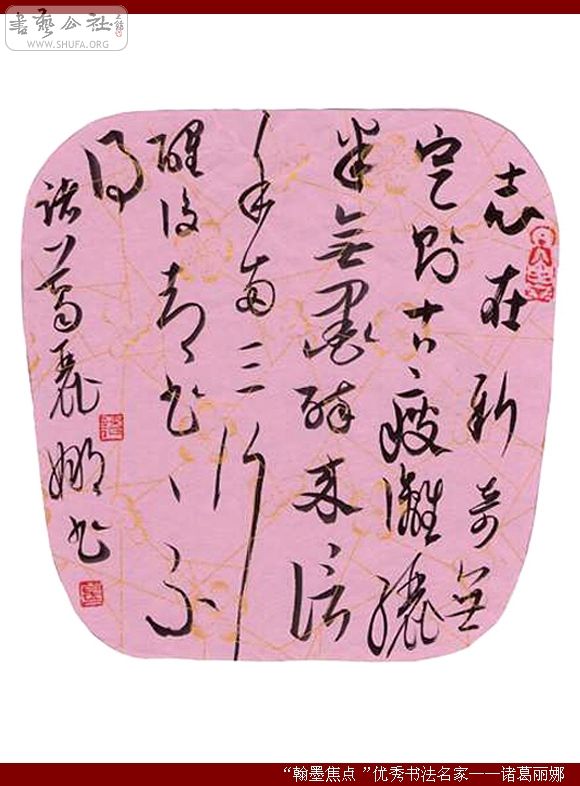 書藝公社
WWW.SHUFA.ORG
志在新奇無
定則古瘦灕纚
半無墨醉来信
手両三行
醒後却書〻不
得
諸葛麗娜書
“翰墨焦点 ”优秀书法名家——诸葛丽娜